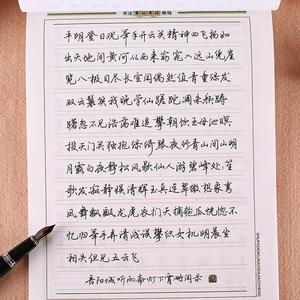 平明登日观 举手开云关 精神四飞扬 如
出天地间 黄河从西来 窈窕入远山 凭崖
览八极 目尽长空闲 偶然值青童 绿发
双云鬟 笑我晚学仙 蹉跎凋朱颜 踌
躇忽不见 浩荡难追攀 朝饮王母池 暝
投天门关 独抱绿绮琴 夜行青山间 山明
月露白 夜静松风歇 仙人游碧峰 处处笙
歌发 寂静娱清辉 玉真连翠微 想象鸾
凤舞 飘飘龙虎衣 扪天摘匏瓜 恍惚不
忆归 举手弄清浅 误攀织女机 明晨坐
相失 但见五云飞